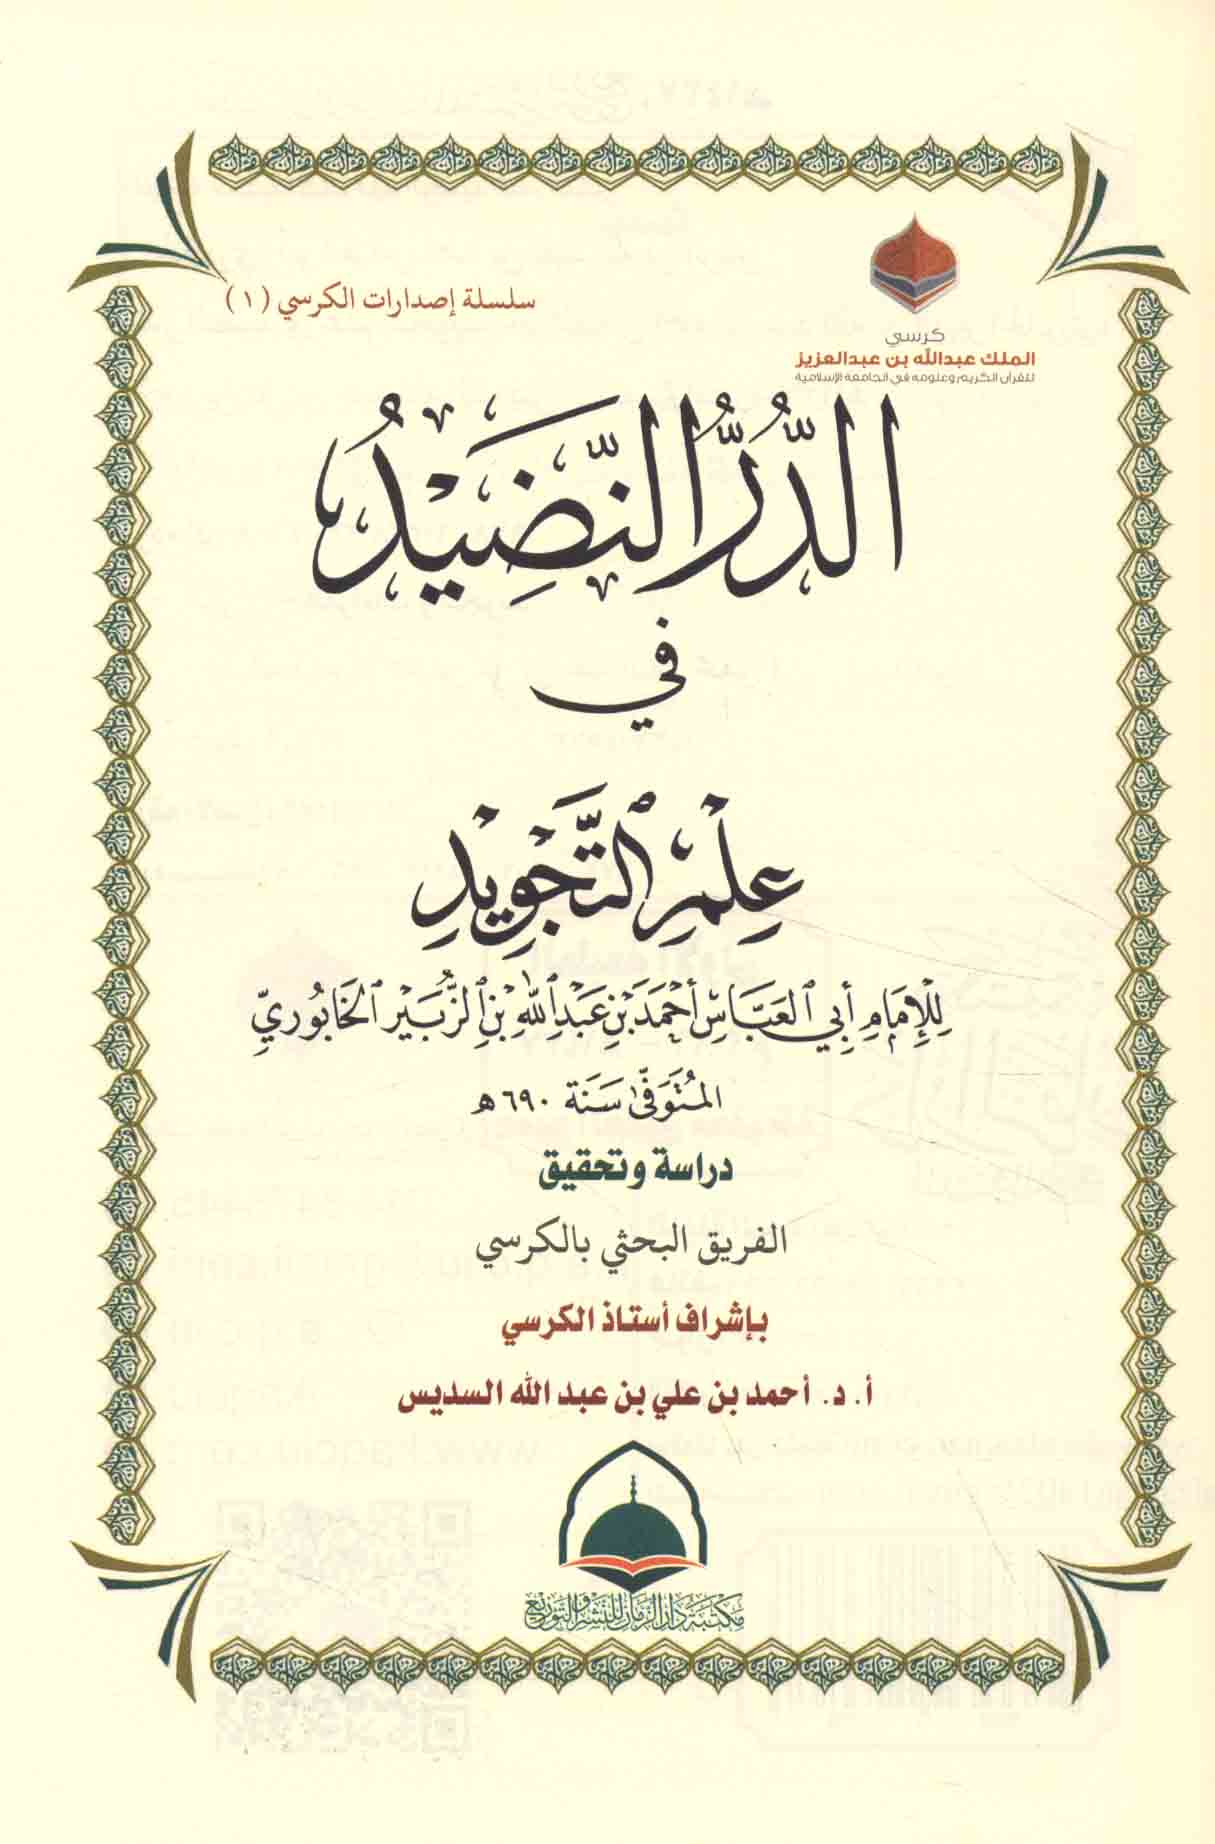 كرسي
الملك عبدالله بن عبدالعزيز
للقرآن الكريم وعلومه في الجامعة الإسلامية
سلسلة إصدارات الكرسي (١)
الدُّرُّ النَّضِيْدُ
في
عِلْمِ التَّجْوِيْدِ
لِلْإِمَامِ أَبِي العَبَّاسِ أَحْمَدَ بْنِ عَبْدِ اللهِ بْنِ الزُّبَيْرِ الخَابُورِيِّ
المُتَوَفَّى سَنَة ٦٩٠ هـ
دراسة وتحقيق
الفريق البحثي بالكرسي
بإشراف أستاذ الكرسي
أ. د. أحمد بن علي بن عبد الله السديس
مكتبة دار الزمان للنشر والتوزيع